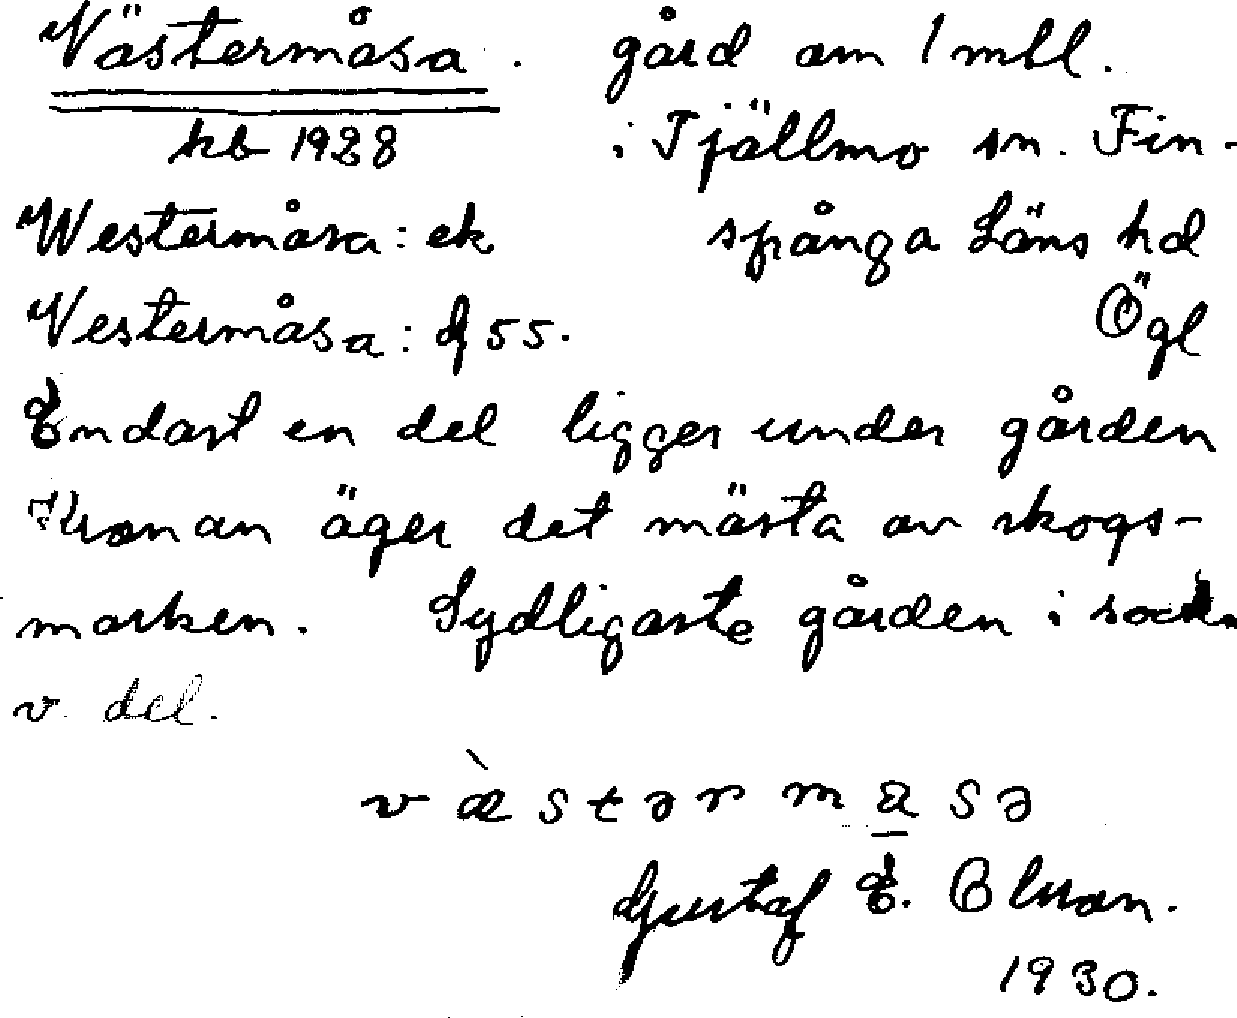 Västermåsa. gård om 1 mtl.
kb 1928 i Tjällmo sn. Fin-
Westermåsa: ek spånga Läns hd
Vestermåsa: df 55. Ögl
Endast en del ligger under gården
Kronan äger det mästa av skogs-
marken. Sydligaste gården i sock.
v. del.
væ̀stərmasə
Gustaf E. Olsson.
1930.